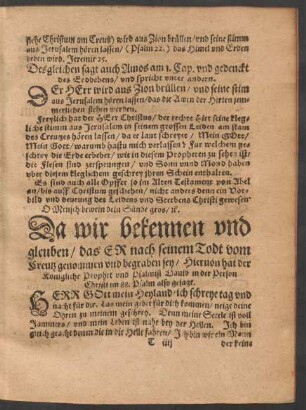 stehe Christum am Creutz wird aus Zion brüllen / und seine stimm
aus Jerusalem hören lassen / (Psalm 22.) das Himel und Erden
beben wird. Jeremie 25.
Desgleichen sagt auch Amos am 1. Cap. und gedenckt
des Erdbebens / und spricht unter andern.
DEr HErr wird aus Zion brüllen / und seine stim
aus Jerusalem hören lassen / das die Auen der Hirten jem-
merlichen stehen werden.
Freylich hat der HErr Christus / der rechte Hirt seine kleg-
liche stimm aus Jerusalem in seinem grossen Leiden am stam
des Creutzes hören lassen / da er laut schreyet / Mein GOtt /
Mein Gott / warumb hastu mich verlassen? Fur welchem ge-
schrey die Erde erbebet / wie in diesem Propheten zu sehen ist /
die Felsen sind zersprungen / und Sonn und Mond haben
uber diesem kleglichem geschrey ihren Schein enthalten.
Es sind auch alle Opffer so im Alten Testament von Abel
an / bis auff Christum geschehen / nicht anders denn ein Vor-
bild und deutung des Leidens und Sterbens Christi gewesen
O Mensch bewein dein Sünde gros / ꝛc.
Da wir bekennen vnd
gleuben / das ER nach seinem Todt vom
Creutz genommen vnd begraben sey / Hiervon hat der
Königliche Prophet vnd Psalmist David in der Person
Christi im 88. Psalm also gesagt.
HERR GOtt mein Heyland / ich schreye tag vnd
nacht für dir. Las mein gebet für dich kommen / neige deine
Ohren zu meinem geschrey. Denn meine Seele ist voll
Jammers / und mein Leben ist nahe bey der Hellen. Ich bin
gleich geacht denen die in die Helle fahren / Ich bin wie ein Mann
T iij
der keine